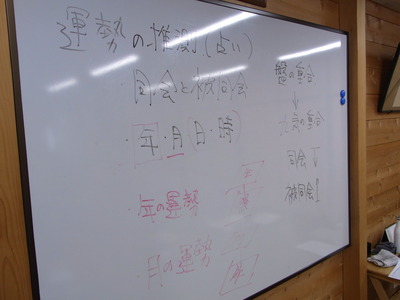 運勢の推測(占い)
・同会と被同会
・年・月(日・時)
・年の運勢
月の運勢
盤の重合
↓
九気の重合
同会 ↓
被同会